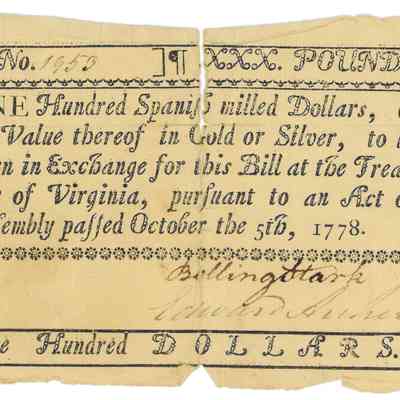 No. 1953 ]¶ XXX. POUND
NE Hundred Spaniſh milled Dollars,
Value thereof in Gold or Silver, to
n in Exchange for this Bill at the Trea
of Virginia, purſuant to an Act
ſembly paſſed October the 5th, 1778.
Bolling Stark
Edward Archer
e Hundred DOLLARS.